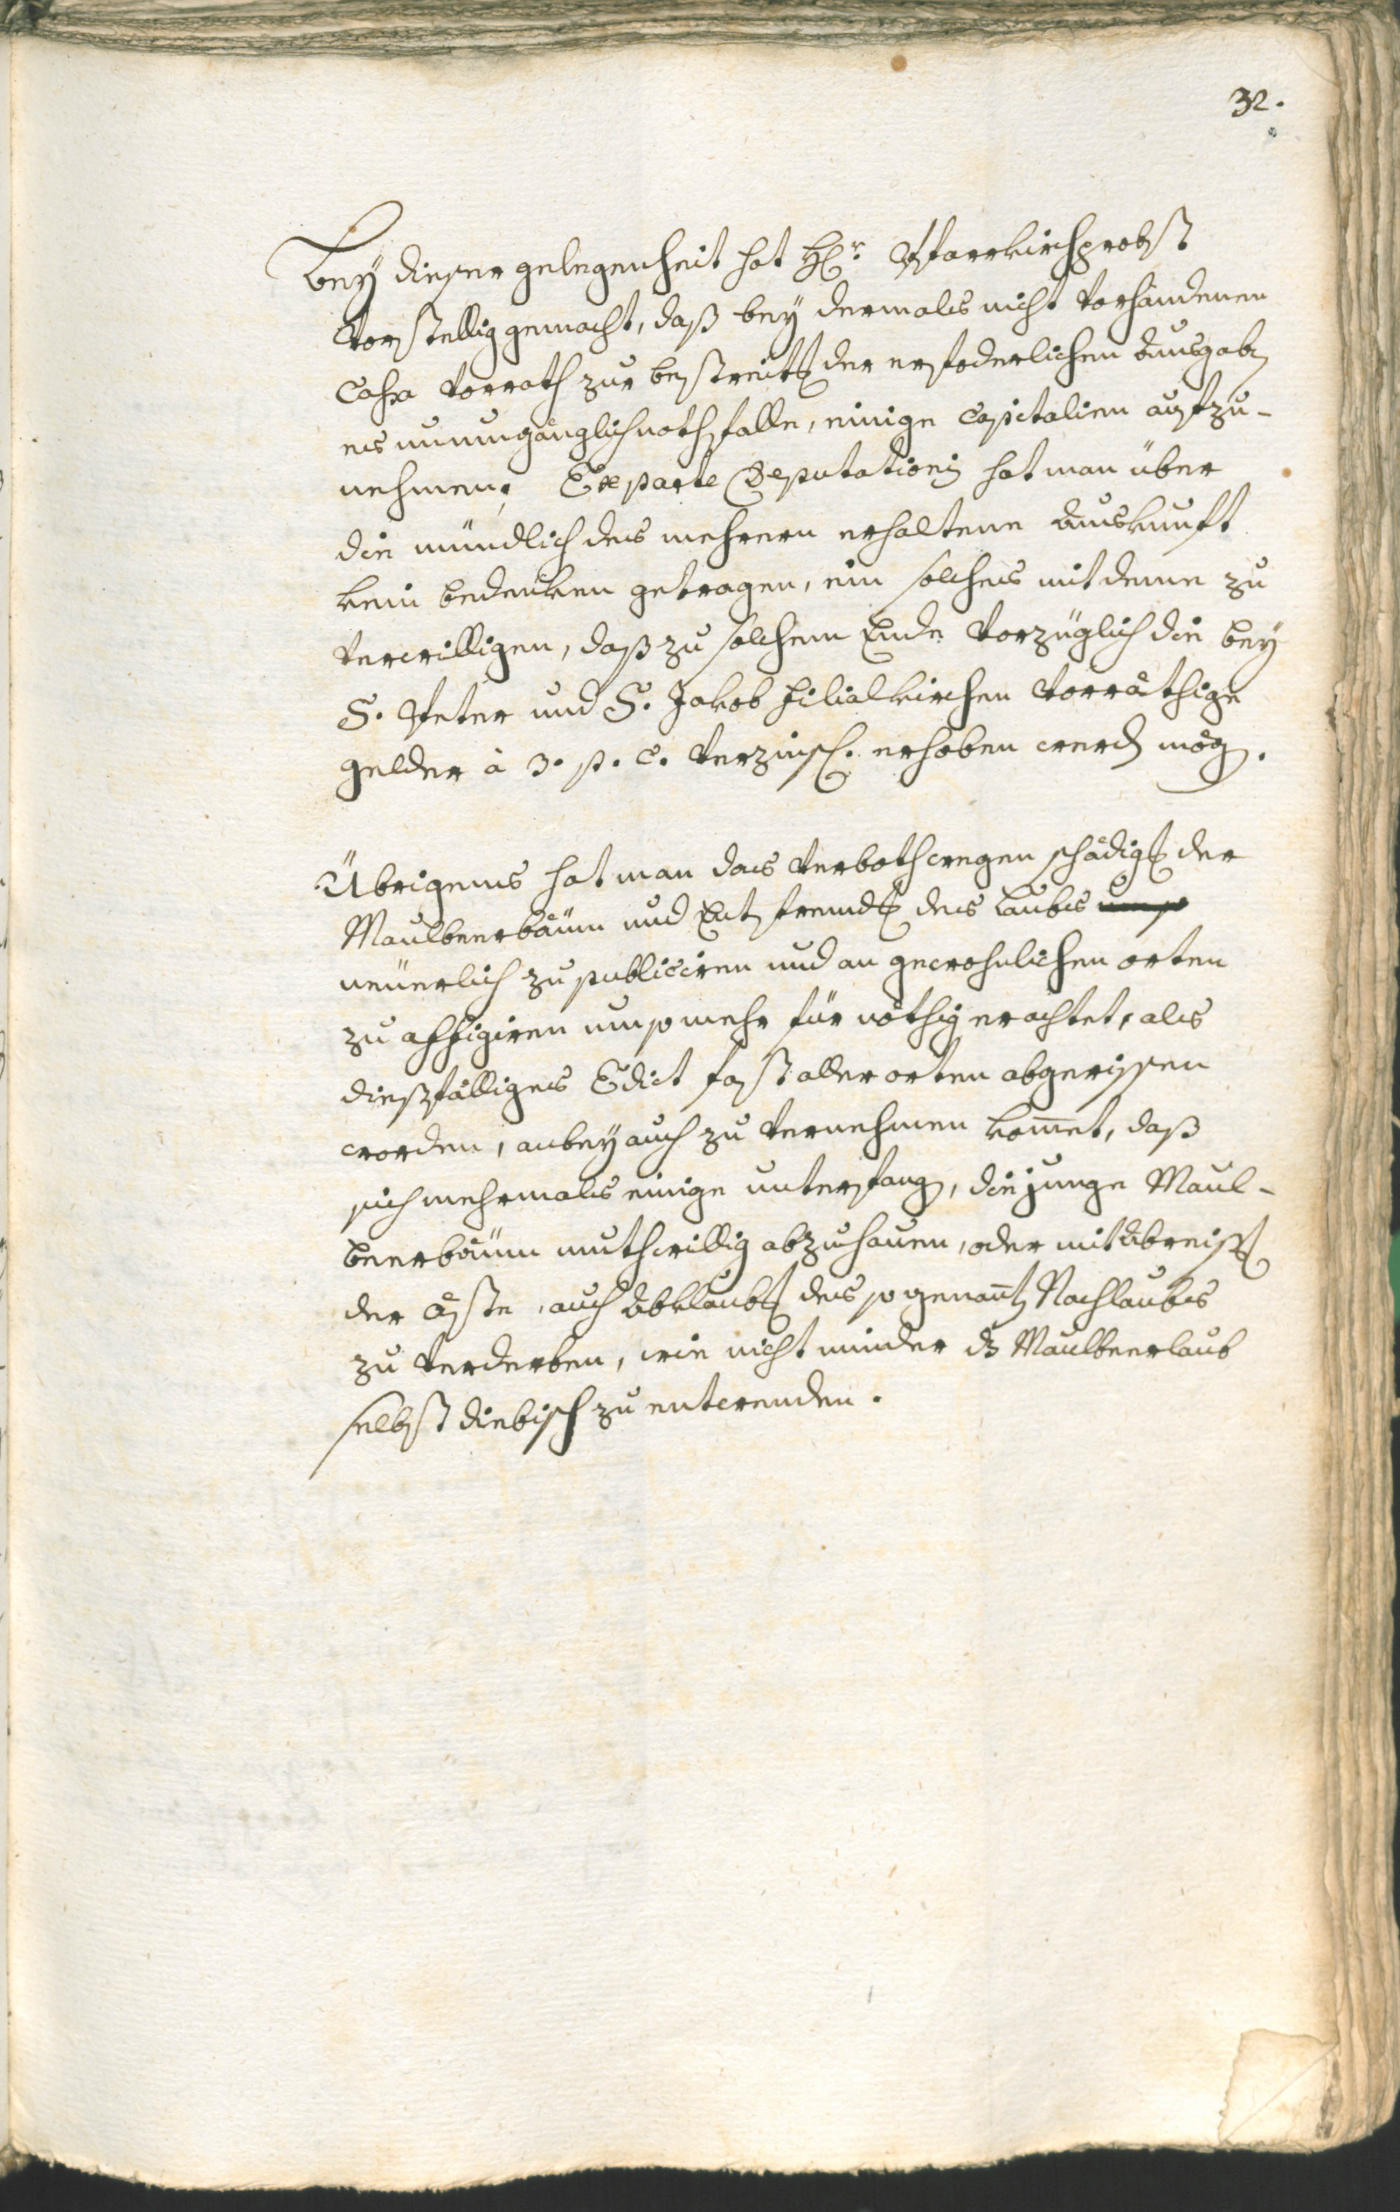 32.
Bey dieser gelegenheit hat H.r Pfarrkirchprobst
vorstellig gemacht, daß bey dermals nicht vorhandenen
Cassa vorrath zur bestreitg der erfoderlichen Ausgaben
es unumgänglich nothfalle, einige Capitalien aufzu-
nehmen; Ex parte Deputationis hat man über
die mündlich des mehrern erhaltene Auskunft
kein bedenken getragen, ein solches mit deme zu
verwilligen, daß zu solchem Ende vorzüglich die bey
S. Peter und S. Jakob Filialkirchen vorräthige
gelder à 3. p. c. verzinsl. erhoben werden mögen.
Übrigens hat man das verboth wegen schädigg der
Maulbeerbäum und Entfremdg des Laubs umso
neuerlich zu publiciren und an gewohnlichen orten
zu affigiren umso mehr für nöthig erachtet, als
diesfälliges Edict fast aller orten abgerissen
worden, anbey auch zu vernehmen kom̅et, daß
sich mehrmals einige unterfangen, die junge Maul-
beerbäum muthwillig abzuhauen, oder mit Abreissg
der äste, auch Abklaubg des so genan̅ten Nachlaubs
zu verderben, wie nicht minder dz Maulbeerlaub
selbst diebisch zu entwenden.